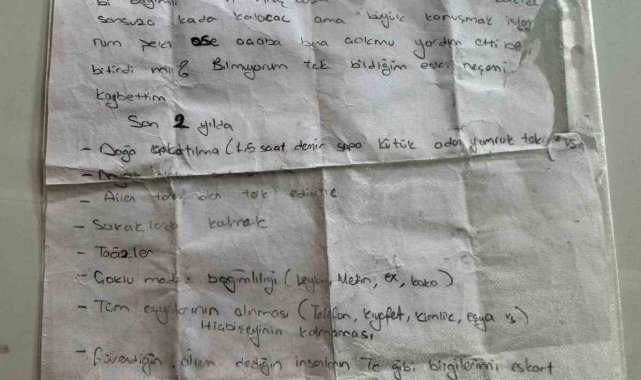 sonsuza kada kalacac ama büyük konuşmak ister
rum peki ose acaba bna cokmu yardım etti be
bitirdi mi? Bilmiyorum tek bildiğim eski neşemi
kaybettim
Son 2 yılda
- Dağa (1.5 saat demir sopa kütük odun yumruk tekme vs)
- Ailem tarafından tek edilme
- Sokaklada kalmak
- Tacizler
- Çoklu madde bağımlılığı ( Metin, ex, koko)
- Tüm eşyalarının alınması (Telefon, kıyafet, kimlik, eşya vs)
Hiçbişeyinin kalmaması
- Güvendiğin, ailem dediğin insanların Tc gibi bilgilerimi eskort